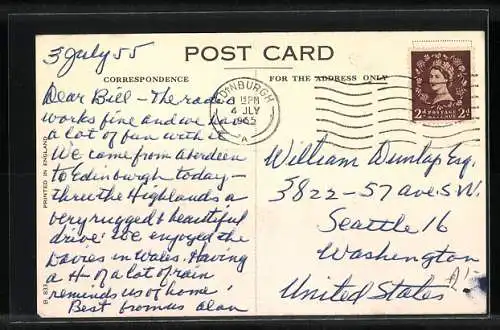 3 July 55
POST CARD
CORRESPONDENCE
FOR THE ADDRESS ONLY
Dear Bill - The radio
works fine and we have
a lot of fun with it.
We come from Aberdeen
to Edinburgh today -
thru the Highlands a
very rugged & beautiful
drive. We enjoyed the
in Wales. Having
a H- of a lot of rain
reminds us of home!
Best from us alan
PRINTED IN ENGLAND
EDINBURGH
PM
4 JLY
1955
A
2D POSTAGE REVENUE 2D
William Dunlap Esq.
3822 - 57 ave. S.W.
Seattle 16
Washington
United States